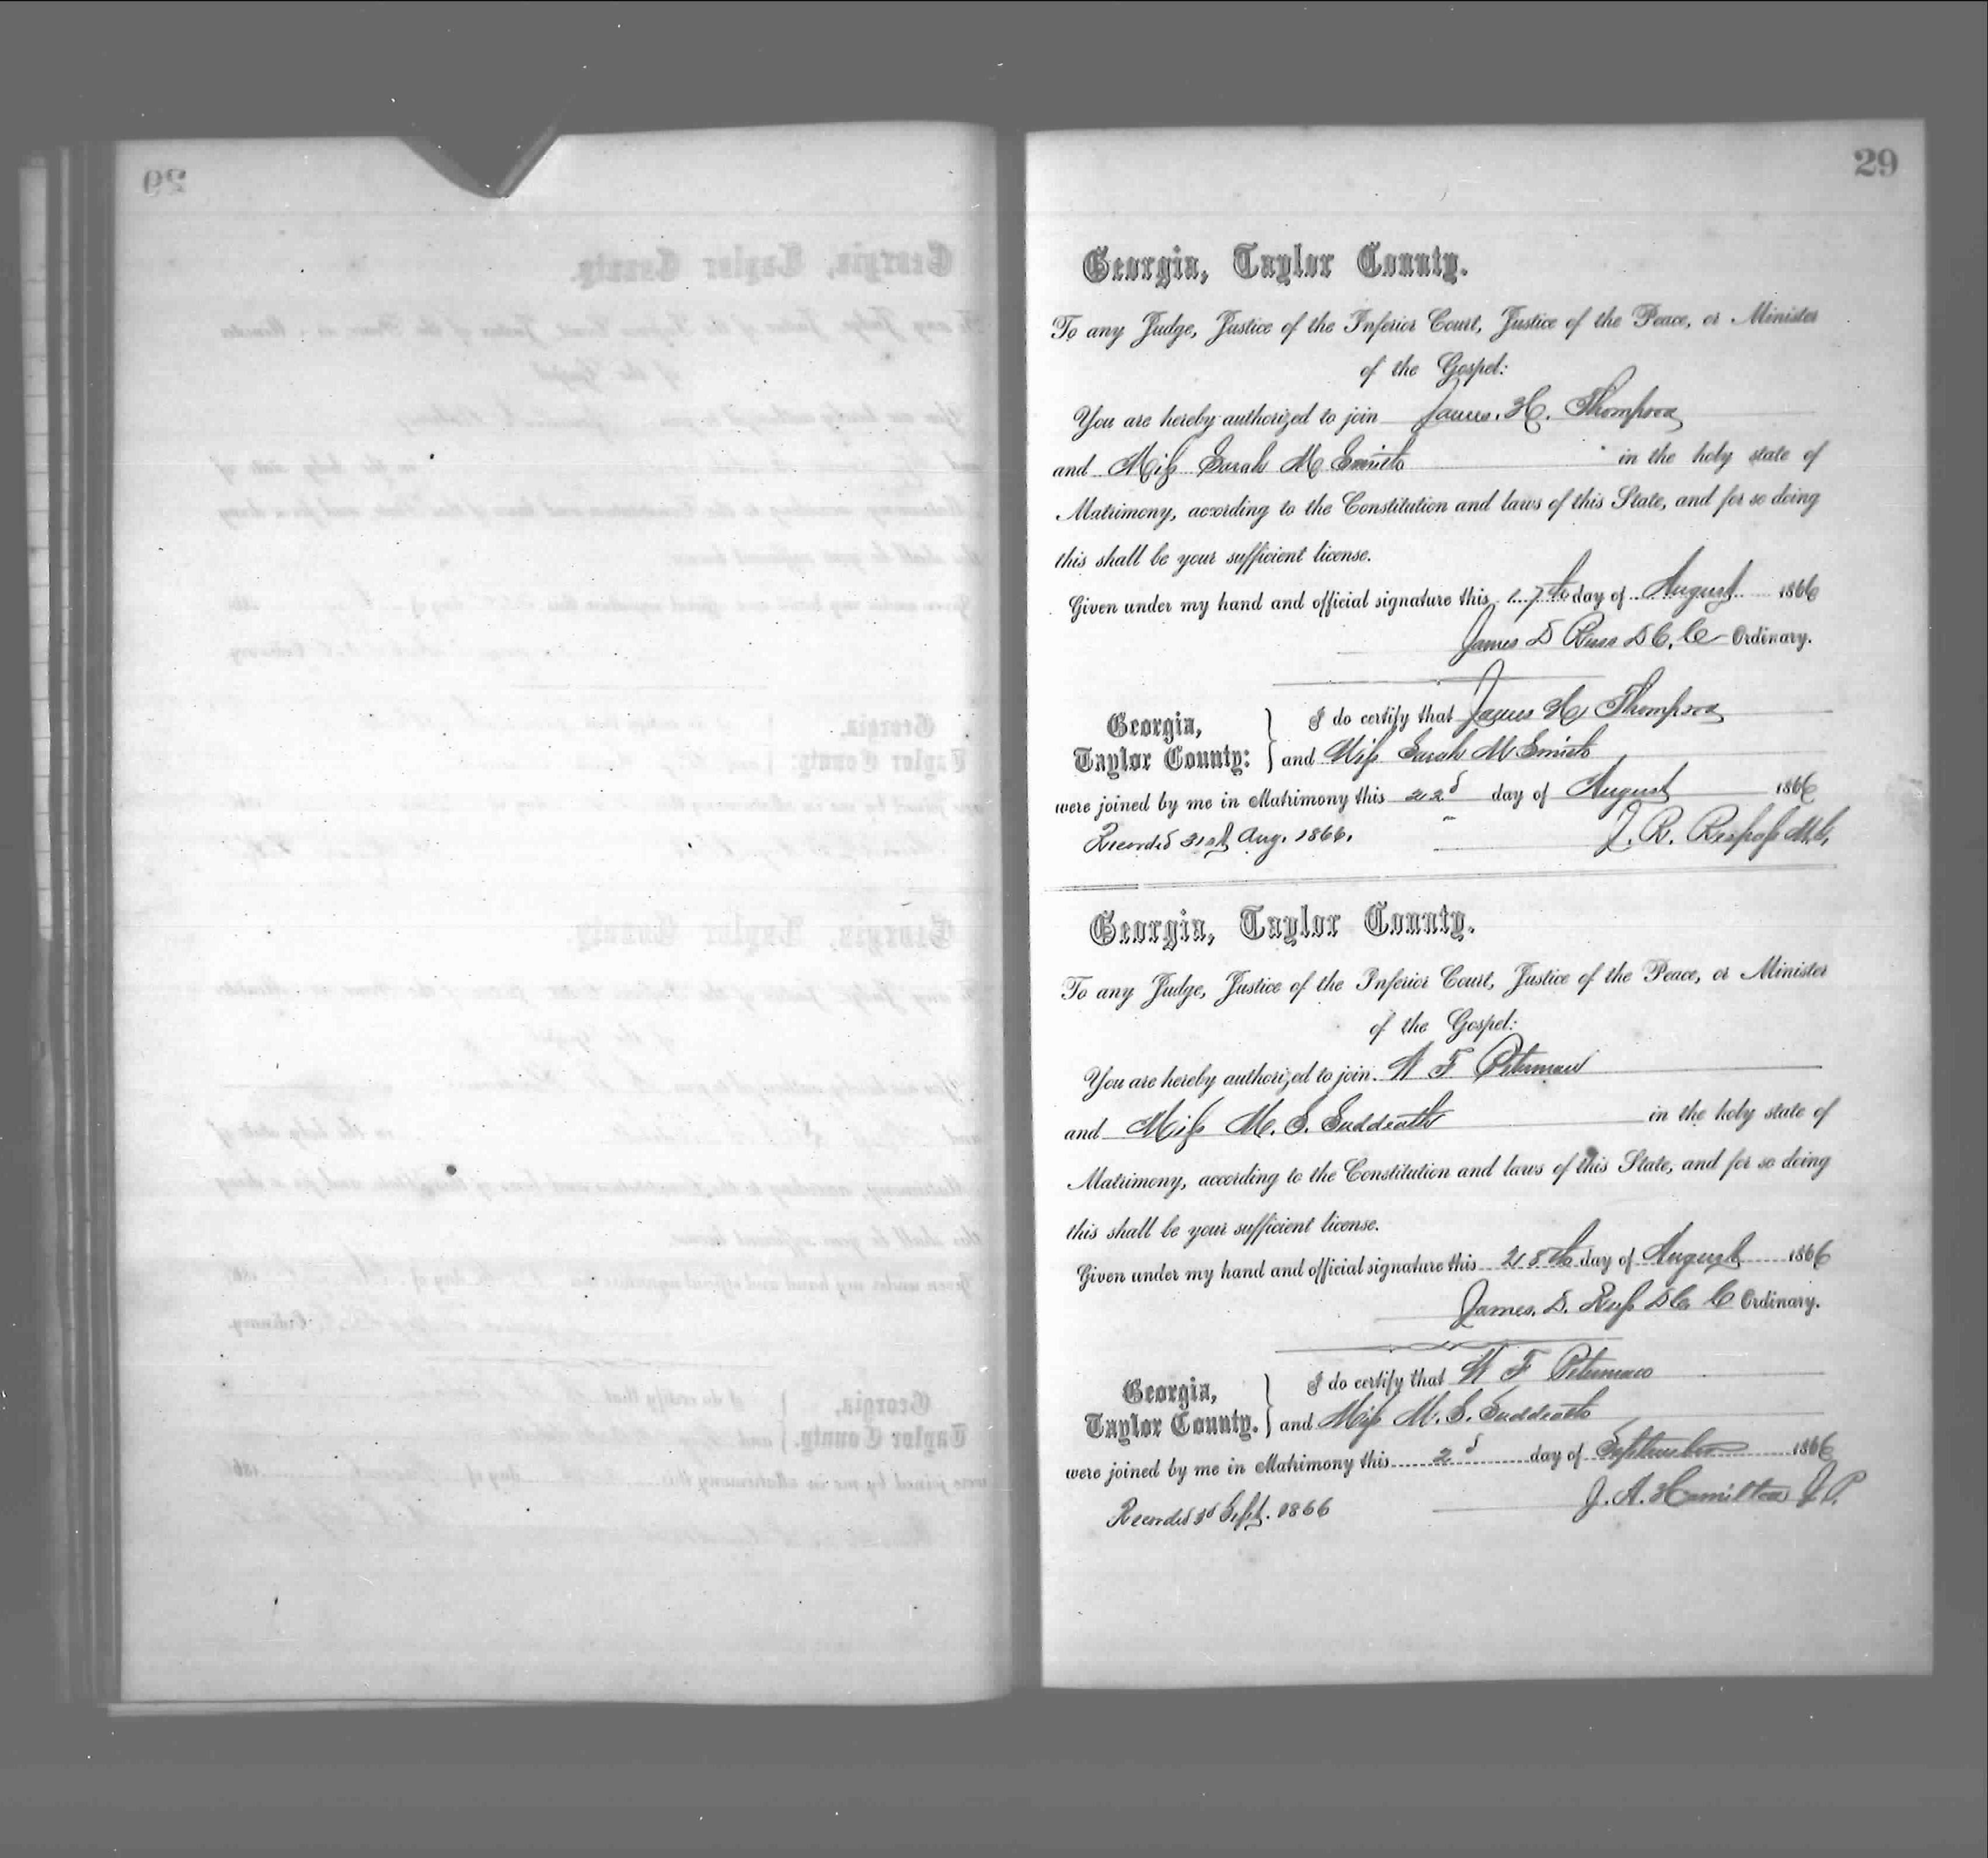 29
Georgia, Taylor County.
To any Judge, Justice of the Inferior Court, Justice of the Peace, or Minister
of the Gospel:
You are hereby authorized to join James. H. Thompson
and Miss Sarah M Smith in the holy state of
Matrimony, according to the Constitution and laws of this State, and for so doing
this shall be your sufficient license.
Given under my hand and official signature this 17th day of August 1866
James D Russ D C. C Ordinary.
Georgia,
Taylor County:
I do certify that James H Thompson
and Miss Sarah M Smith
were joined by me in Matrimony this 22d day of August 1866
Recorded 31st Aug. 1866. J. R. M.G.
Georgia, Taylor County.
To any Judge, Justice of the Inferior Court, Justice of the Peace, or Minister
of the Gospel:
You are hereby authorized to join W F Peterman
and Miss M. S. Suddeath in the holy state of
Matrimony, according to the Constitution and laws of this State, and for so doing
this shall be your sufficient license.
Given under my hand and official signature this 28th day of August 1866
James. D. Russ D C C Ordinary.
Georgia,
Taylor County.
I do certify that W F Peterman
and Miss M. S. Suddeath
were joined by me in Matrimony this 2d day of September 1866
Recorded 3d Sept. 1866 J. A. Hamilton J.P.